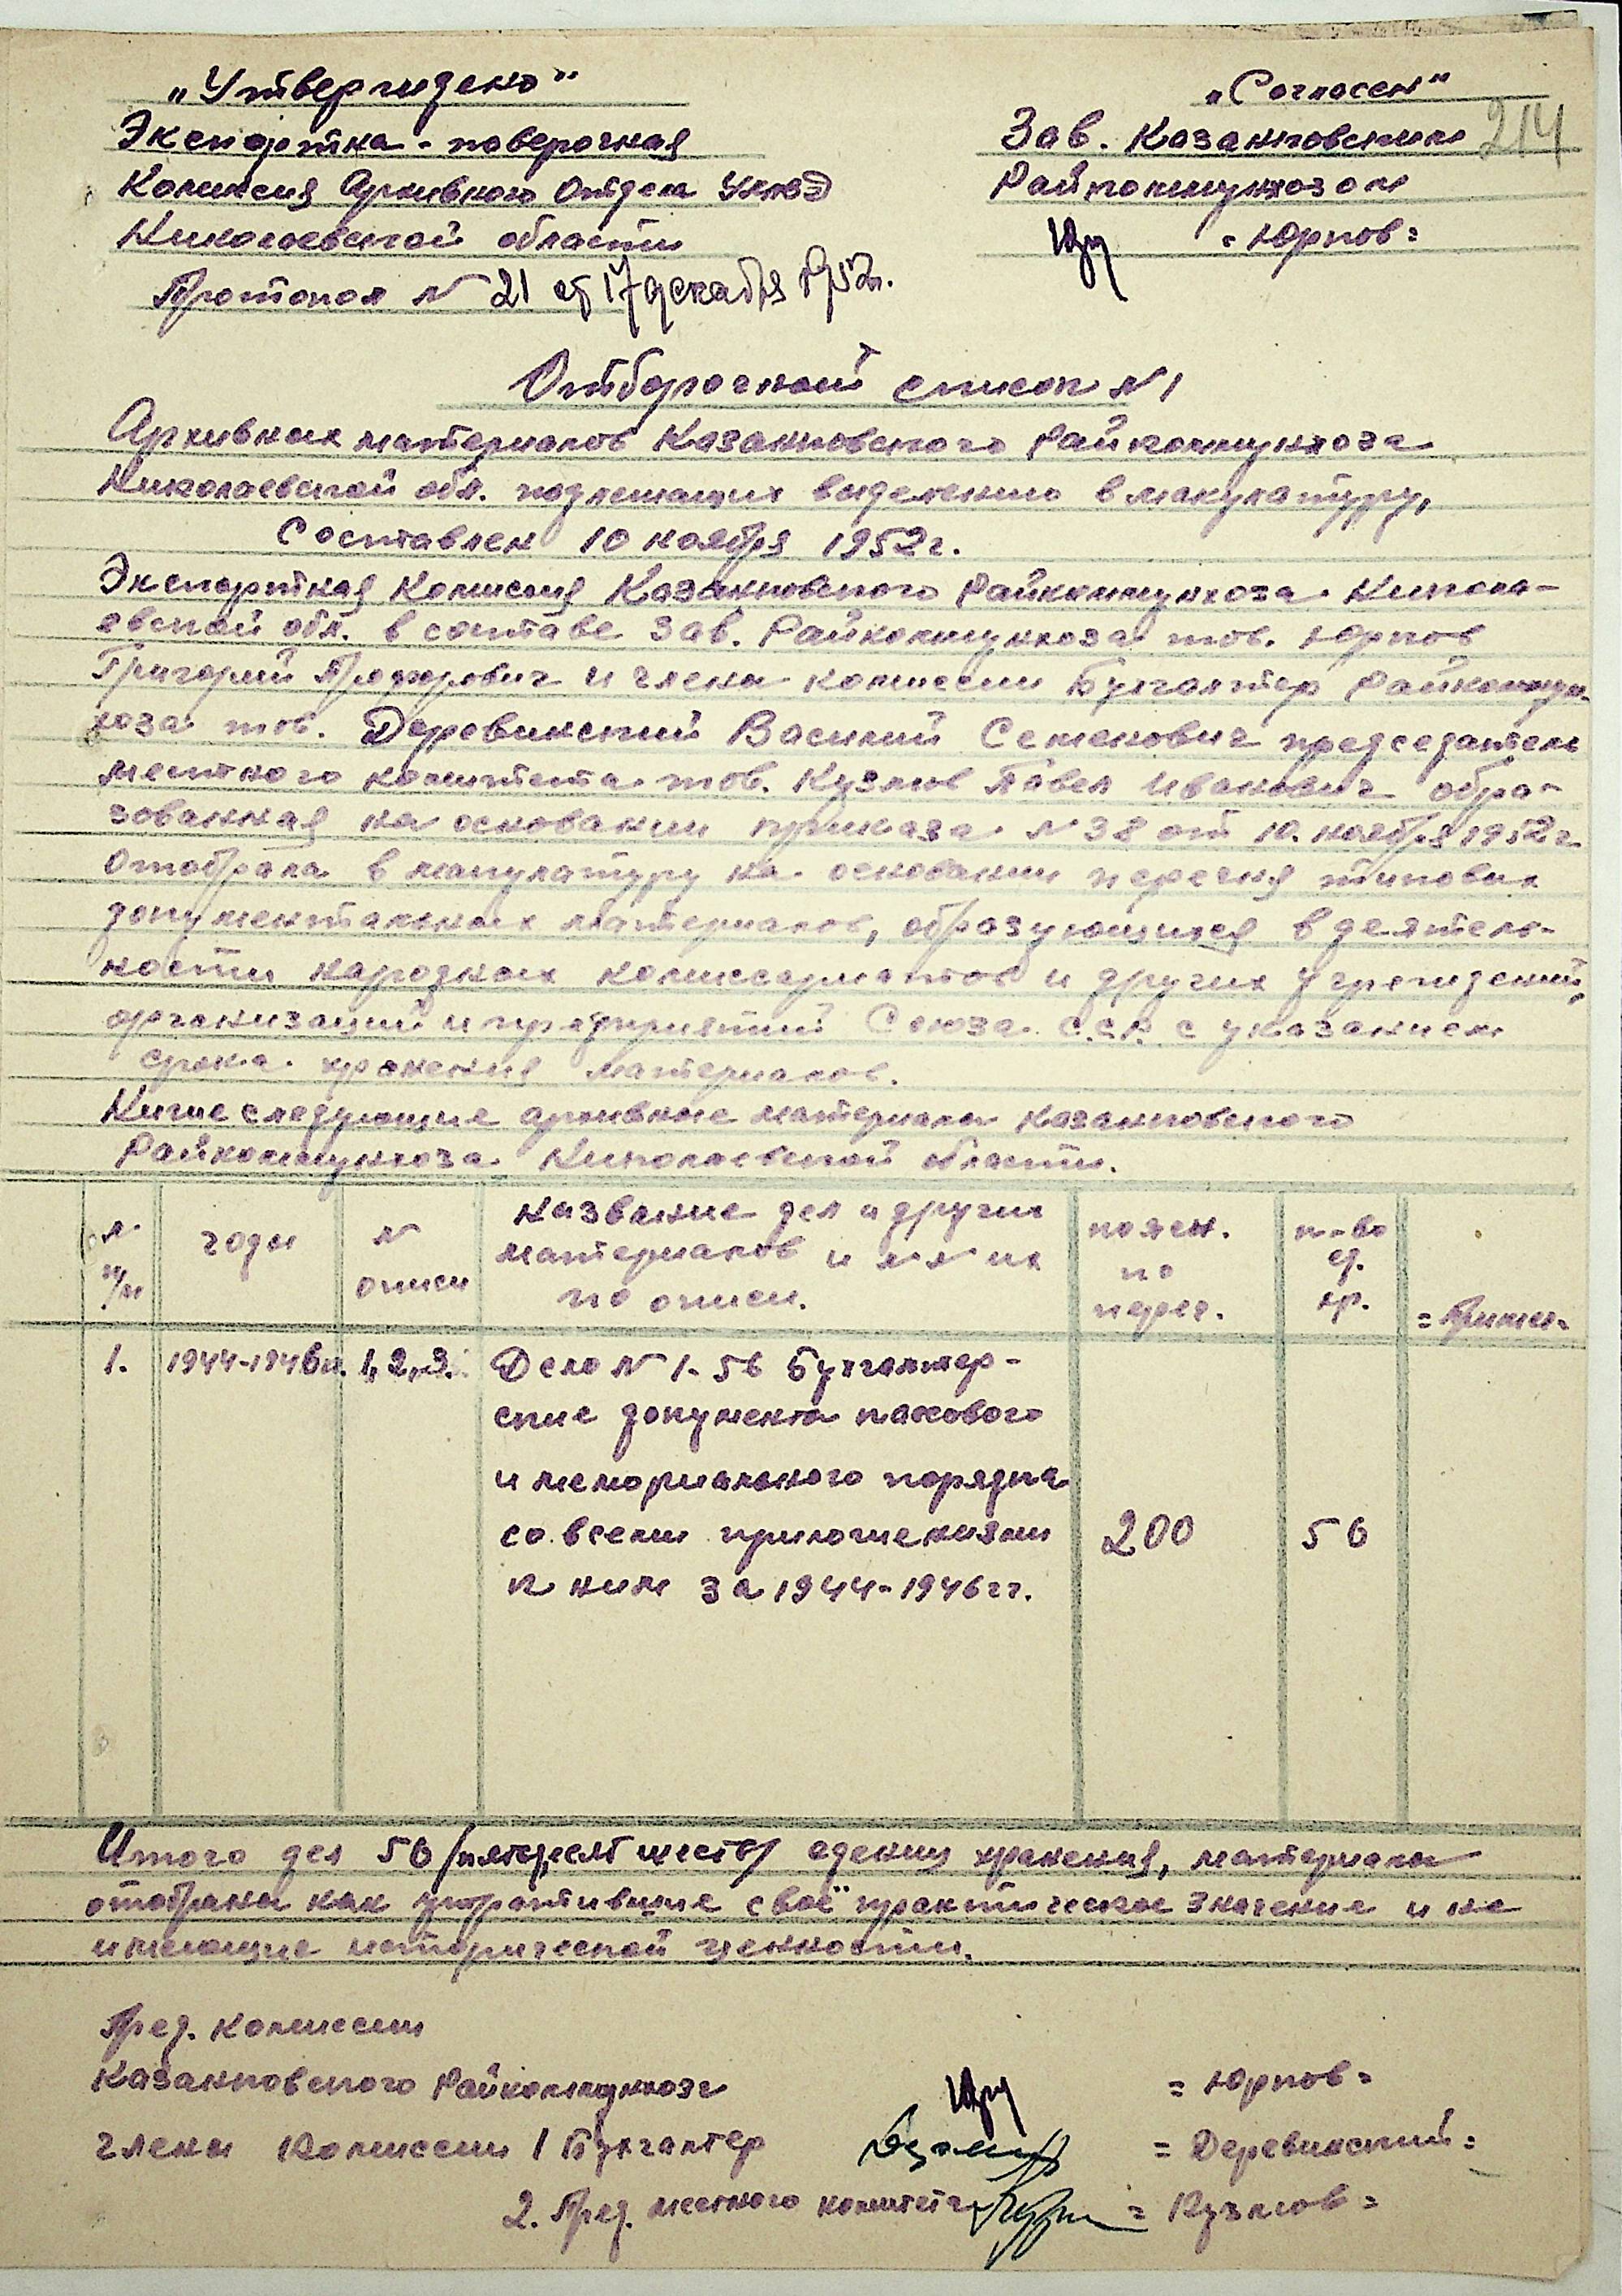 „Утверждено"
Экспертна-поверочная
Комиссия Архивного Отдела УМВД
Николаевской области
Протокол N 21 от 17 декабря 1952г.
„Согласен"
214
Зав. Казанковским
Райкоммунхозом
= Юрков =
Отборочный список N 1
Архивных материалов Казанковского Райкоммунхоза
Николаевской обл. подлежащих выделению в макулатуру,
Составлен 10 ноября 1952г.
Экспертная Комиссия Казанковского Райкоммунхоза Никола-
евской обл. в составе Зав. Райкоммунхоза тов. Юрков
Григорий и члены комиссии Бухгалтер Райкоммун-
хоза тов. Деревинский Василий Семенович председатель
местного комитета тов. Кузмов Павел Иванович обра-
зованная на основании приказа N 38 от 10. ноября 1952г.
Отобрала в макулатуру на основании перечня типовых
документальных материалов, образующихся в деятель-
ности народных комиссариатов и других учреждений,
организаций и предприятий Союза С.С.Р. с указанием
срока хранения материалов.
Ниже следующие архивные материалы Казанковского
Райкоммунхоза Николаевской области.
N п/п
годы
N описи
название дел и других
материалов и N N их
по описи.
по
переч.
к-во
ед.
хр.
= Примеч.
1. 1944-1946гг. 1, 2, 3. Дело N 1-56 Бухгалтер-
ские документы кассового
и мемориального порядка
со всеми приложениями 200 56
к ним за 1944-1946гг.
Итого дел 56 /пятьдесят шесть/ едениц хранения, материалы
отобраны как утратившие своё практическое значение и не
имеющие исторической ценности.
Пред. Комиссии
Казанковского Райкоммунхоза = Юрков =
члены Комиссии 1 Бухгалтер = Деревинский =
2. Пред. местного комитета = Кузмов =